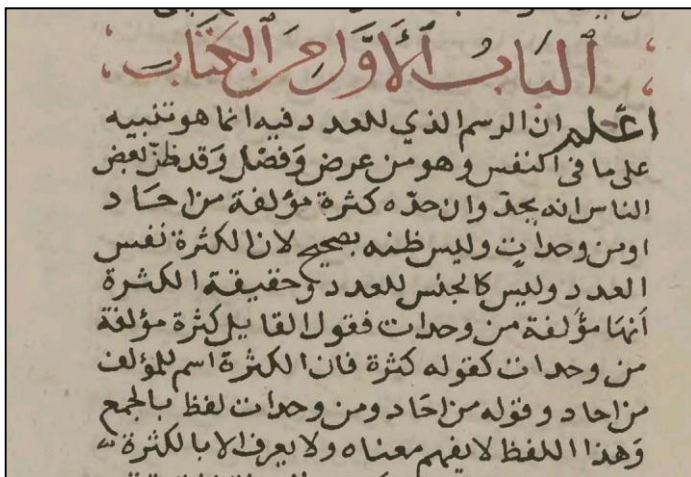 الباب الأول من الكتاب
اعلم ان الرسم الذي للعدد فيه انما هو تنبيه
على ما فى النفس وهو من عرض وفصل وقد ظنّ بعض
الناس انه يحدّ وان حدّه كثرة مؤلفة من احاد
او من وحدات وليس ظنه بصحيح لان الكثرة نفس
العدد وليس كالجنس للعدد وحقيقة الكثرة
انها مؤلفة من وحدات فقول القايل كثرة مؤلفة
من وحدات كقوله كثرة فان الكثرة اسم للمؤلف
من احاد وقوله من احاد ومن وحدات لفظ بالجمع
وهذا اللفظ لا يفهم معناه ولا يعرف الا بالكثرة